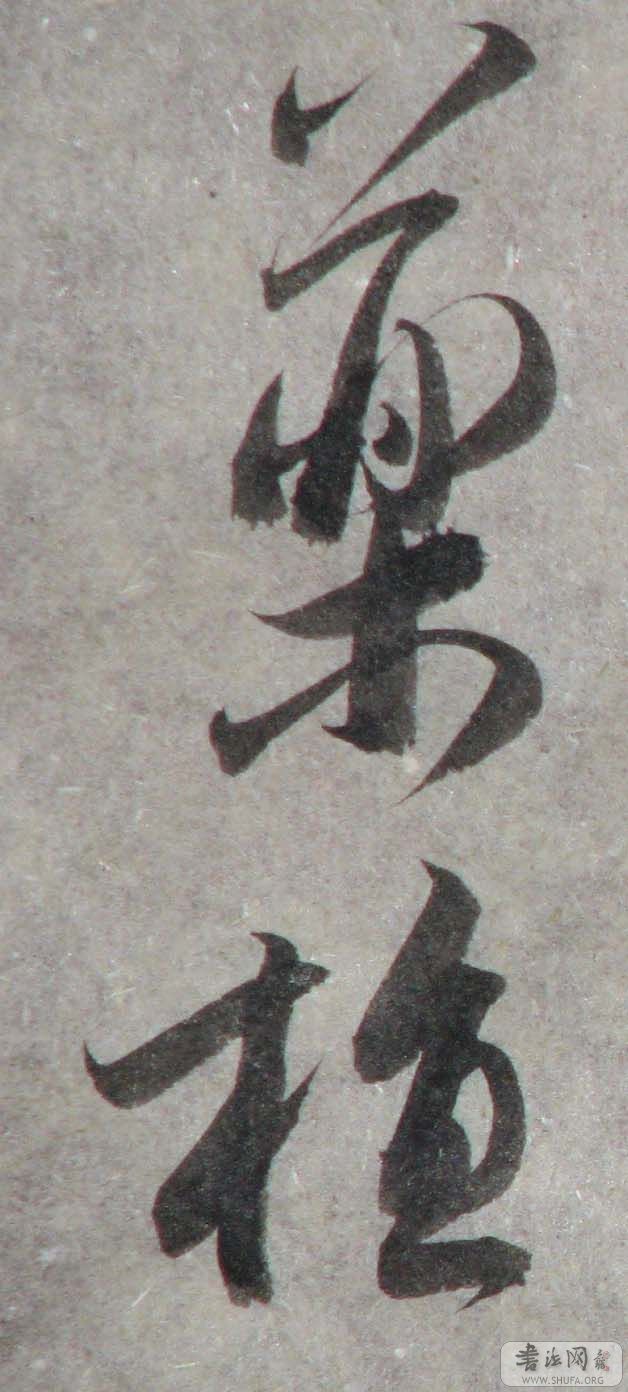 藥
植
書法网
WWW.SHUFA.ORG